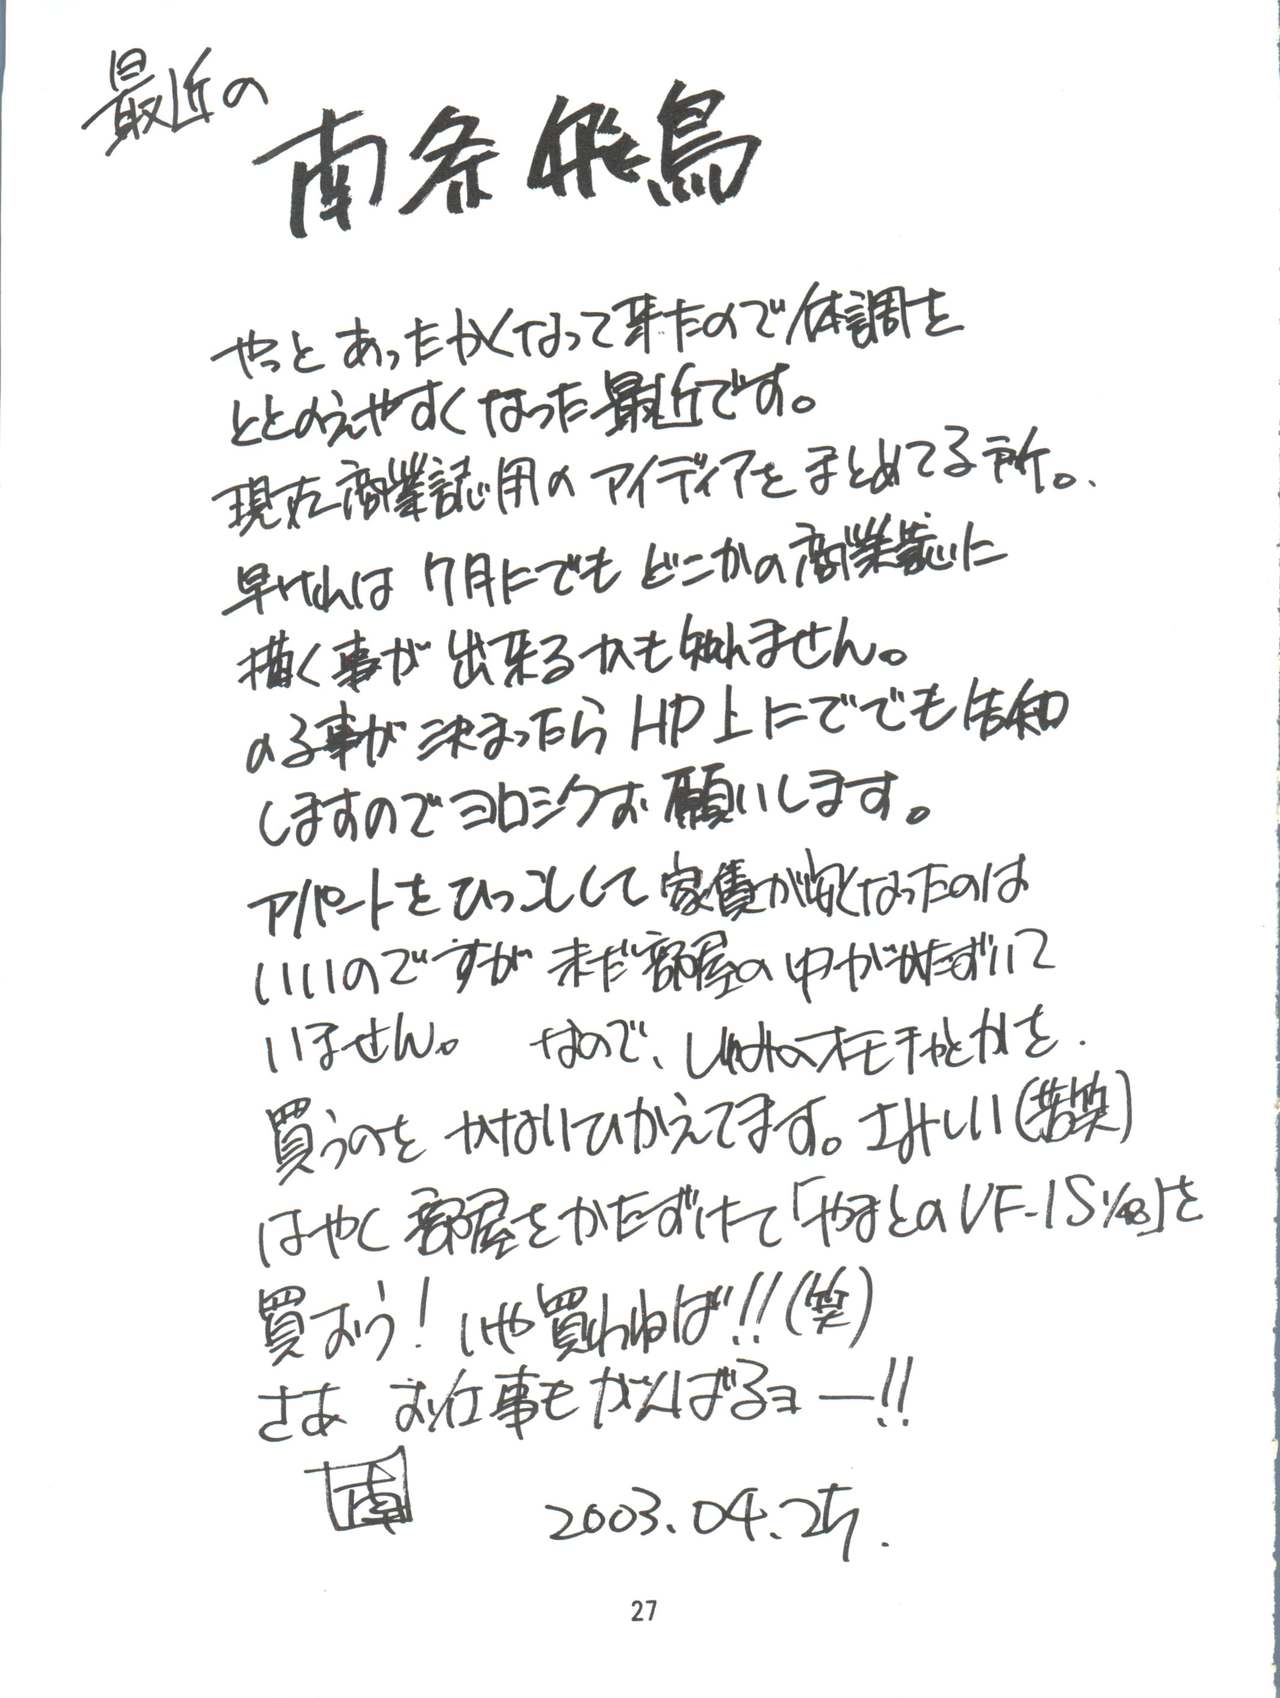 最近の
南条飛鳥
やっとあったかくなって来たので体調を
ととのえやすくなった最近です。
現在商業誌用のアイディアをまとめてる所。
早ければ7月にでもどこかの商業誌に
描く事が出来るかも知れません。
のる事が決まったらHP上にでも告知
しますのでヨロシクお願いします。
アパートをひっこしして家賃が安くなったのは
いいのですが未だ部屋の中がかたずいて
いません。 なので、しゅみのオモチャとかを
買うのをかなりひかえてます。さみしい(苦笑)
はやく部屋をかたずけて「やまとのVF-1S1/48」を
買おう!いや買わねば!!(笑)
さあ お仕事もがんばるヨー!!
南
2003.04.25.
27